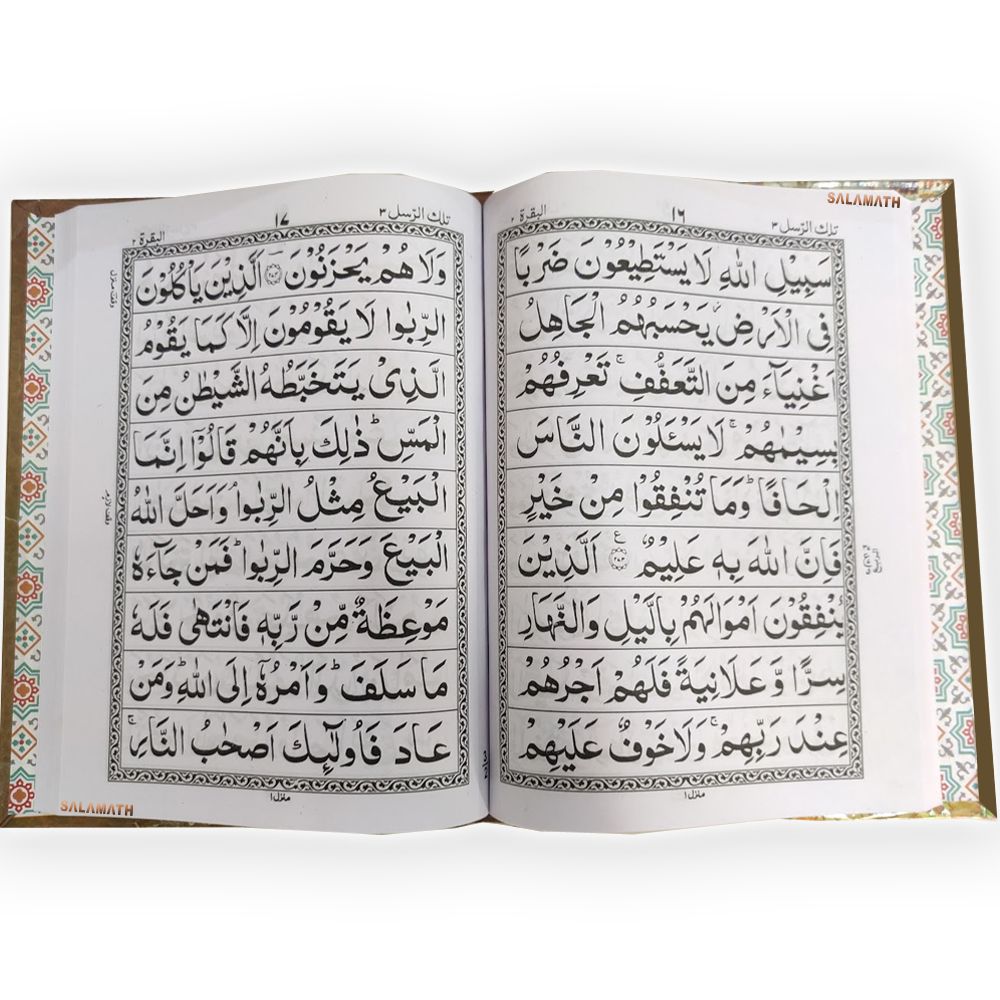 SALAMATH
تلك الرّسل ٣
١٦
البقرة ٢
سَبِيْلِ اللّٰهِ لَا يَسْتَطِيْعُوْنَ ضَرْبًا
فِى الْاَرْضِ ۫ يَحْسَبُهُمُ الْجَاهِلُ
اَغْنِيَآءَ مِنَ التَّعَفُّفِ ۚ تَعْرِفُهُمْ
بِسِيْمٰىهُمْ ۚ لَا يَسْـَٔلُوْنَ النَّاسَ
اِلْحَافًا ؕ وَمَا تُنْفِقُوْا مِنْ خَيْرٍ
فَاِنَّ اللّٰهَ بِهٖ عَلِيْمٌ ۝٢٧٣ ع اَلَّذِيْنَ
يُنْفِقُوْنَ اَمْوَالَهُمْ بِالَّيْلِ وَالنَّهَارِ
سِرًّا وَّعَلَانِيَةً فَلَهُمْ اَجْرُهُمْ
عِنْدَ رَبِّهِمْ ۚ وَلَا خَوْفٌ عَلَيْهِمْ
منزل ١
تلك الرّسل ٣
١٧
البقرة ٢
وَلَا هُمْ يَحْزَنُوْنَ ۝٢٧٤ اَلَّذِيْنَ يَاْكُلُوْنَ
الرِّبٰوا لَا يَقُوْمُوْنَ اِلَّا كَمَا يَقُوْمُ
الَّذِىْ يَتَخَبَّطُهُ الشَّيْطٰنُ مِنَ
الْمَسِّ ؕ ذٰلِكَ بِاَنَّهُمْ قَالُوْۤا اِنَّمَا
الْبَيْعُ مِثْلُ الرِّبٰوا ۘ وَاَحَلَّ اللّٰهُ
الْبَيْعَ وَحَرَّمَ الرِّبٰوا ؕ فَمَنْ جَآءَهٗ
مَوْعِظَةٌ مِّنْ رَّبِّهٖ فَانْتَهٰى فَلَهٗ
مَا سَلَفَ ؕ وَاَمْرُهٗۤ اِلَى اللّٰهِ ؕ وَمَنْ
عَادَ فَاُولٰٓئِكَ اَصْحٰبُ النَّارِ ۚ
منزل ١
SALAMATH